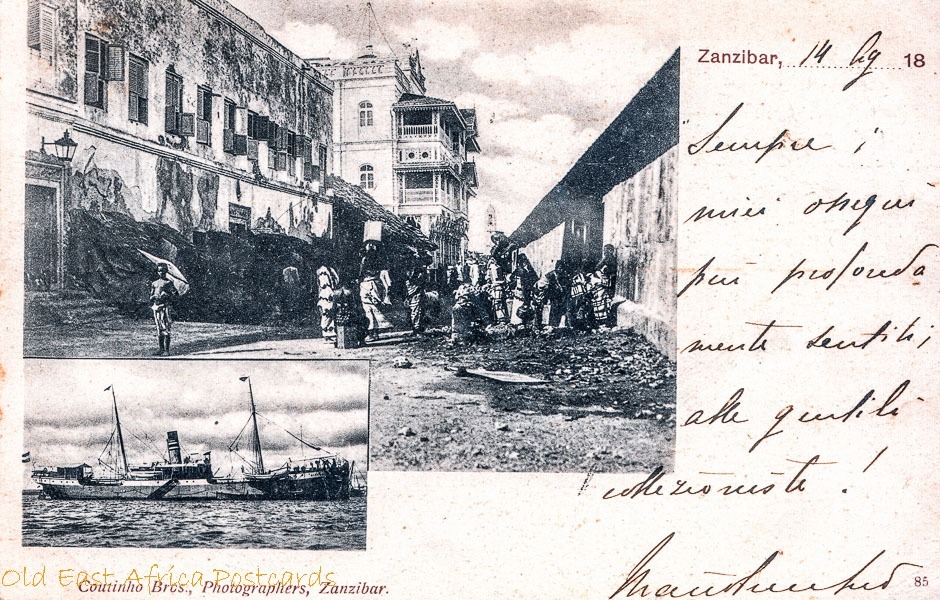 Zanzibar, 14 Lg 18
Sempre i
miei ossequi
più profonda
mente sentiti,
alle gentili
collezioniste!
85
Old East Africa Postcards
Coutinho Bros., Photographers, Zanzibar.